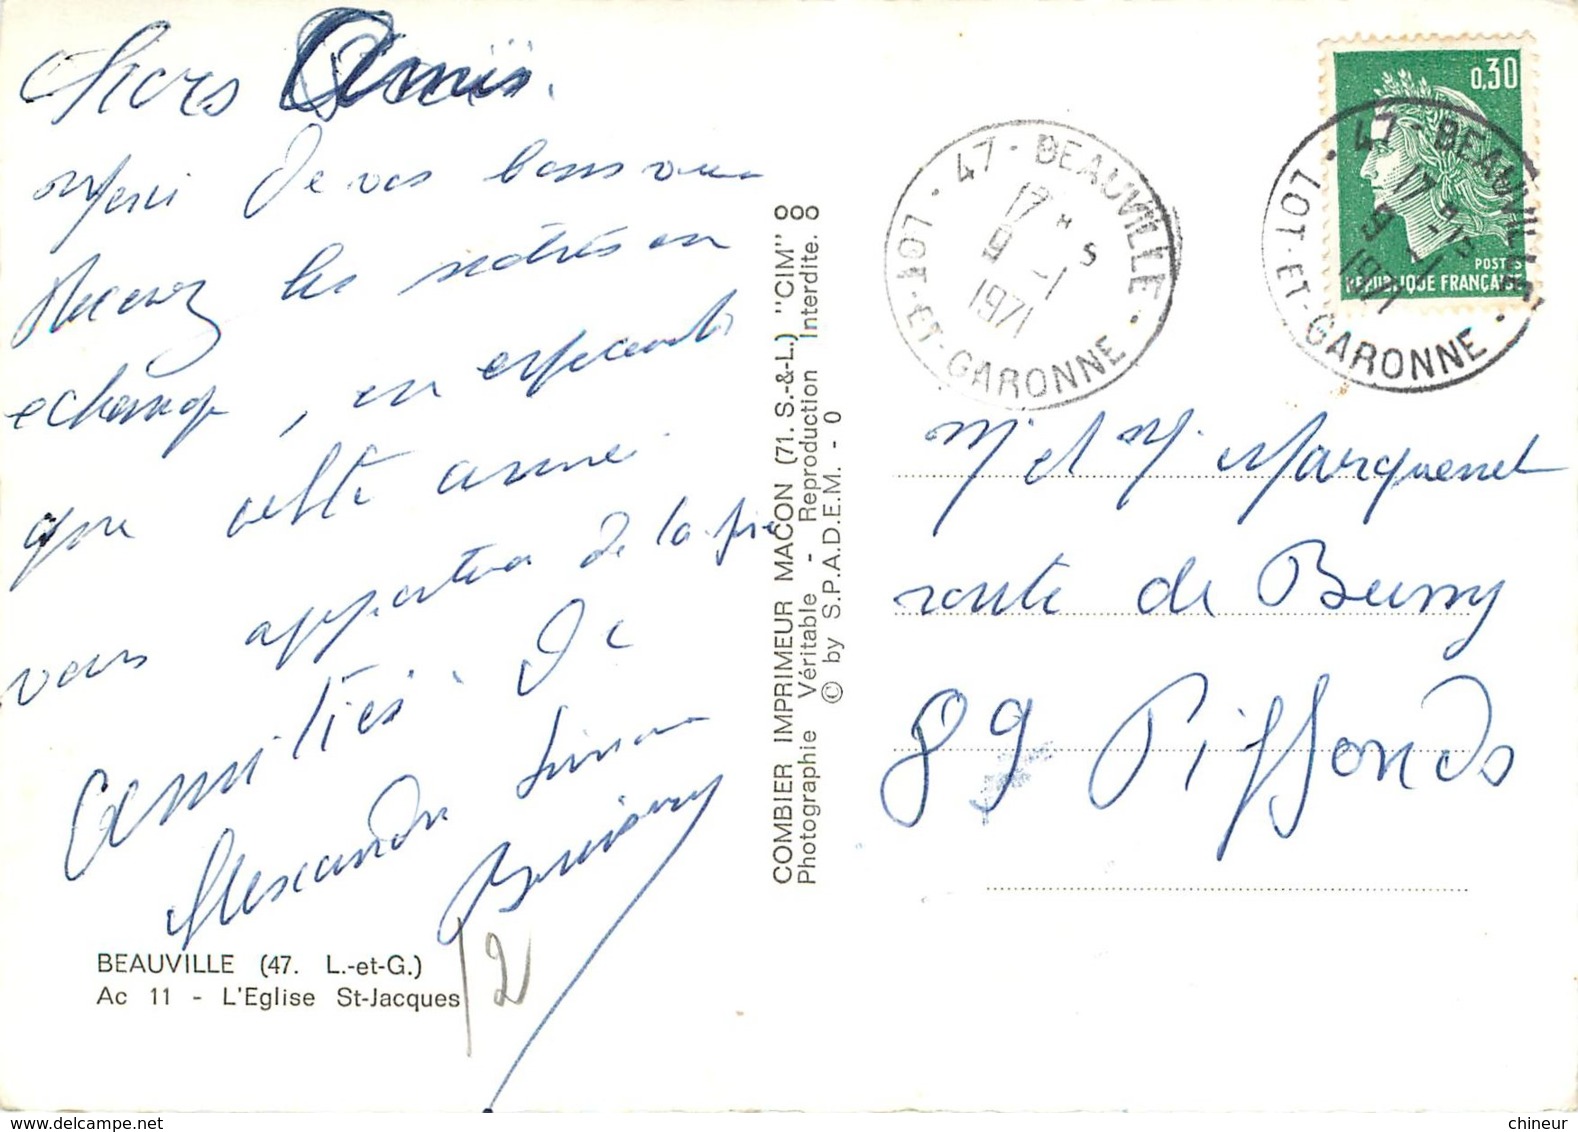 Chers Amis.
Merci de vos bons vœux
Recevez les nôtres en
echange, en espérant
que cette année
vous apportera de la joie
Amitiés. De
Alexandre Simone
BEAUVILLE (47. L.-et-G.)
Ac 11 - L'Eglise St-Jacques
12
COMBIER IMPRIMEUR MACON (71. S.-&-L.) "CIM"
Photographie Véritable - Reproduction Interdite.
© by S.P.A.D.E.M. - 0
47 - BEAUVILLE
17 H 5
9 -1
1971
LOT-ET-GARONNE
0,30
POSTES
REPUBLIQUE FRANÇAISE
47 - BEAUVILLE
17 H
9 -1
1971
LOT-ET-GARONNE
Mr et M. Marquenet
route de Bussy
89 Piffonds
chineur